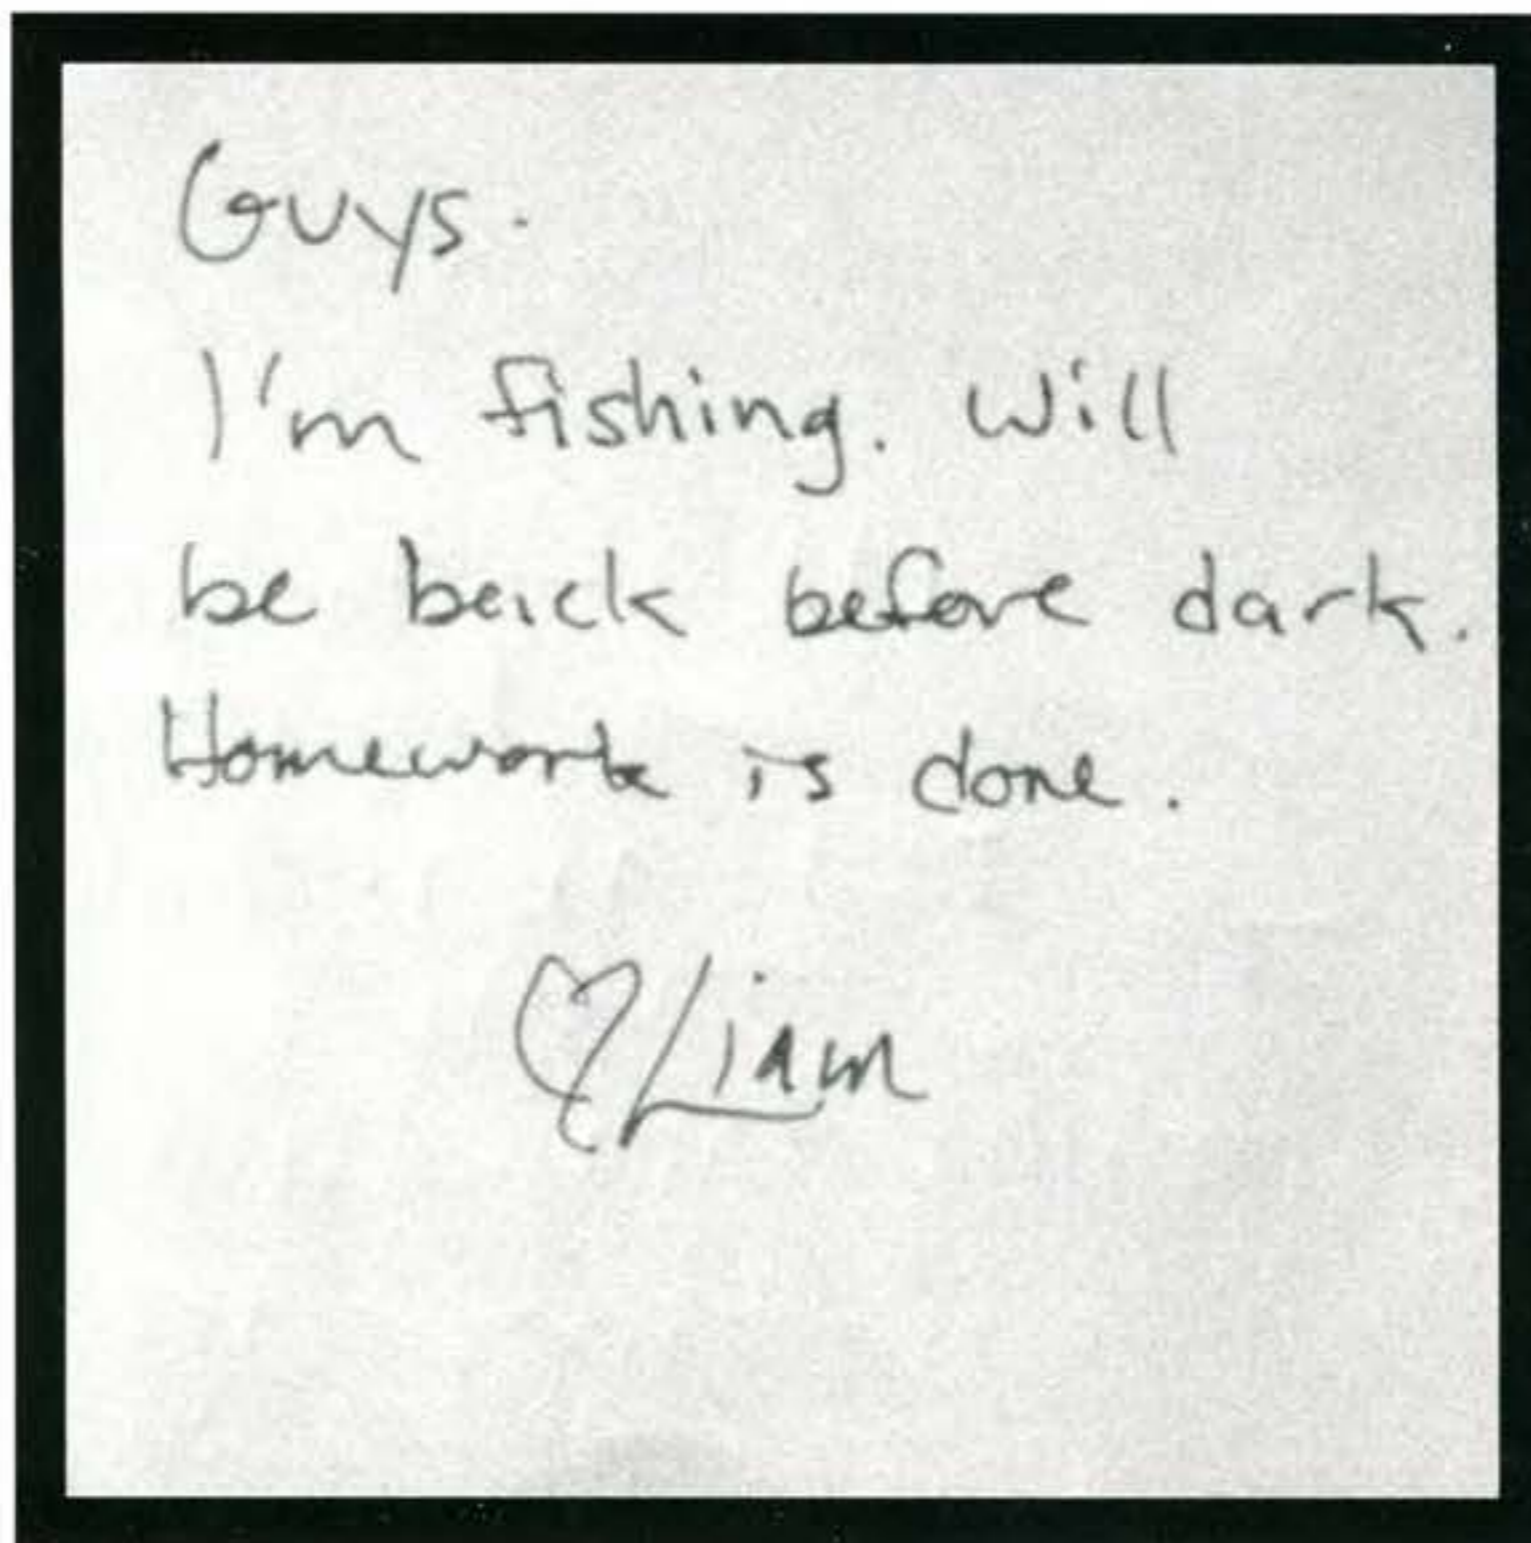 Guys.
I'm fishing. Will
be back before dark.
Homework is done.
♡Liam